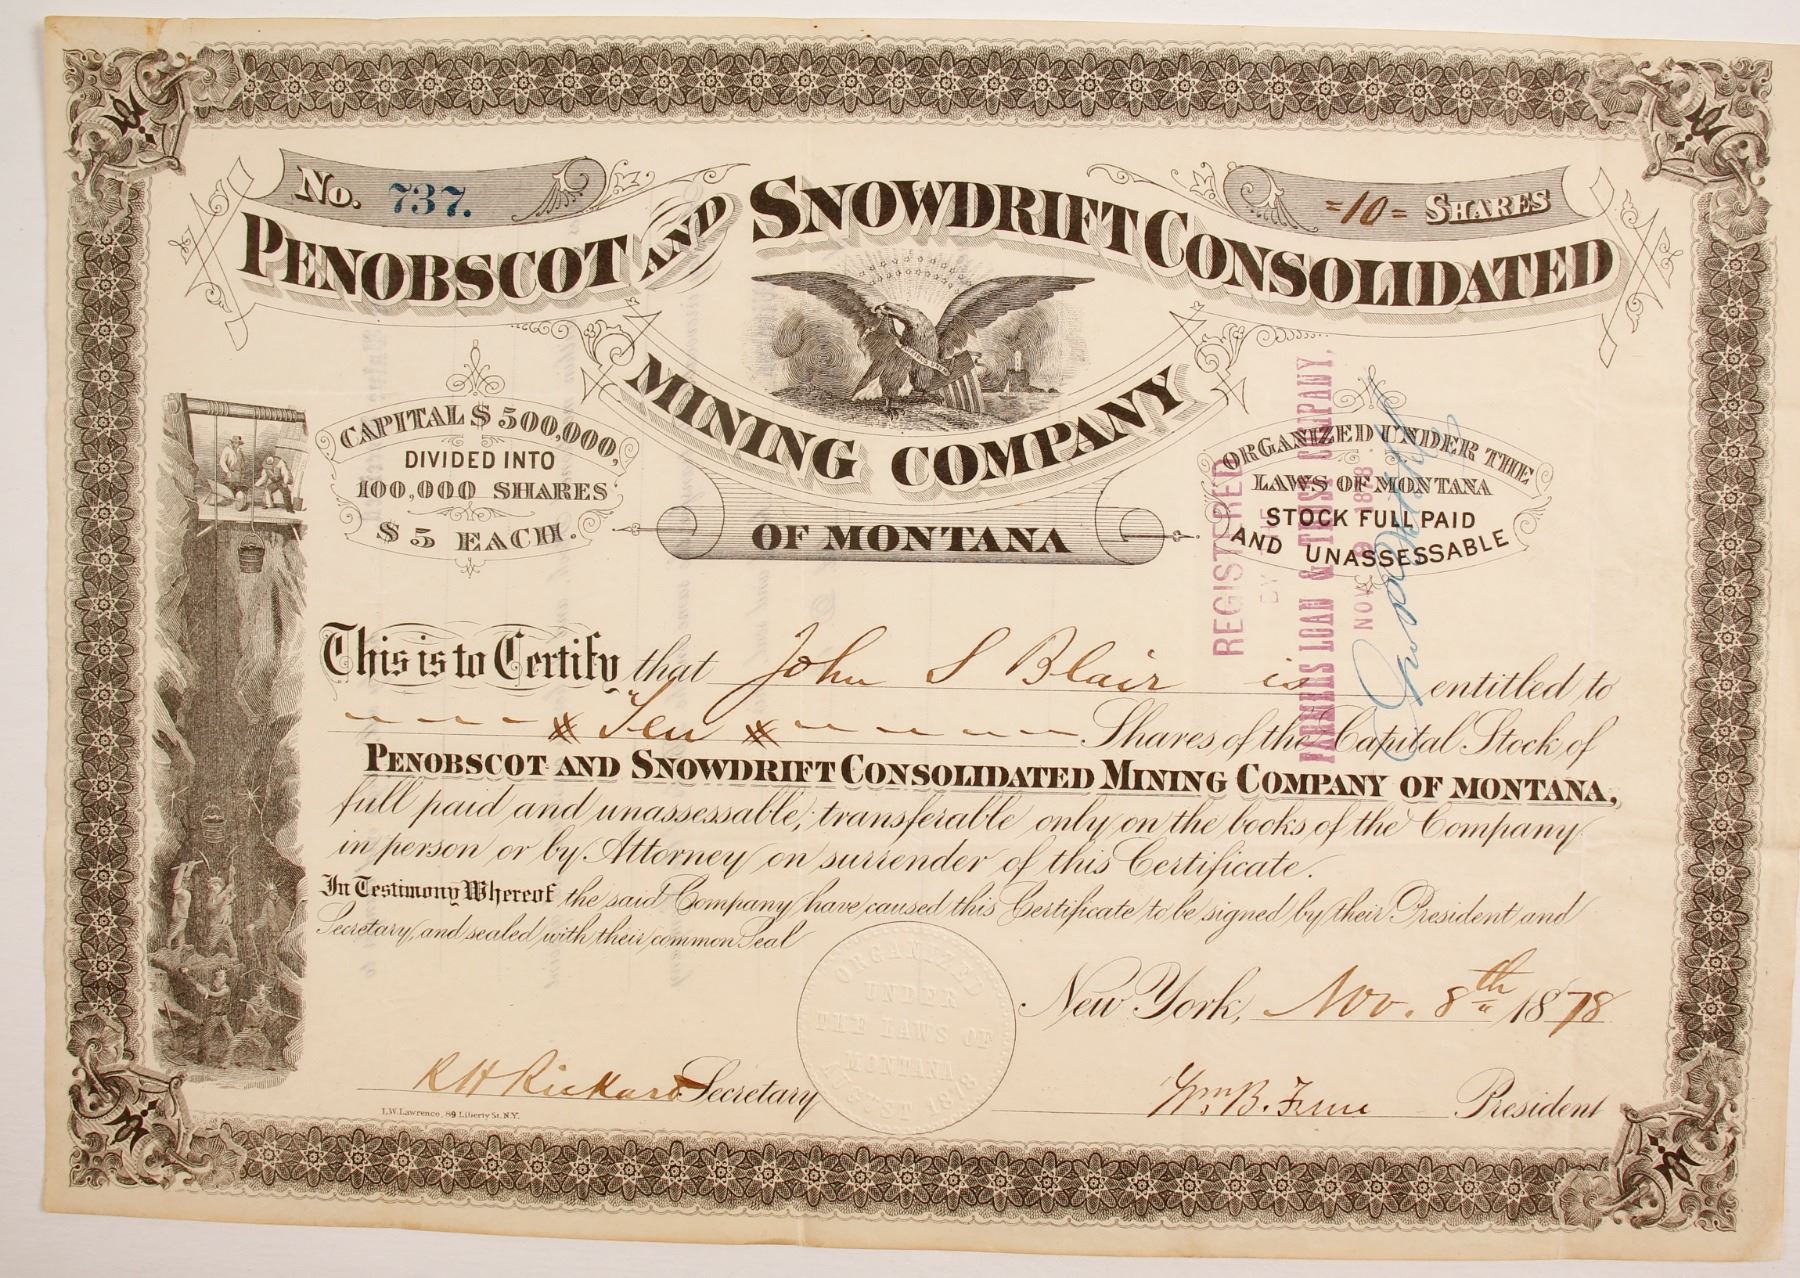 No. 737.
=10= SHARES
PENOBSCOT AND SNOWDRIFT CONSOLIDATED
MINING COMPANY
OF MONTANA
CAPITAL $500,000,
DIVIDED INTO
100,000 SHARES
$5 EACH.
ORGANIZED UNDER THE
LAWS OF MONTANA
STOCK FULL PAID
AND UNASSESSABLE
REGISTERED
BY THE
FARMERS LOAN & TRUST COMPANY,
NOV 8 1878
This is to Certify that John S Blair is entitled to
Ten Shares of the Capital Stock of
PENOBSCOT AND SNOWDRIFT CONSOLIDATED MINING COMPANY OF MONTANA,
full paid and unassessable, transferable only on the books of the Company
in person or by Attorney on surrender of this Certificate.
In Testimony Whereof the said Company have caused this Certificate to be signed by their President and
Secretary, and sealed with their common Seal
ORGANIZED
UNDER
THE LAWS OF
MONTANA
AUGUST 1878
New York, Nov. 8th 1878
R H Rickard Secretary
Wm. B. President
L.W. Lawrence, 89 Liberty St. N.Y.